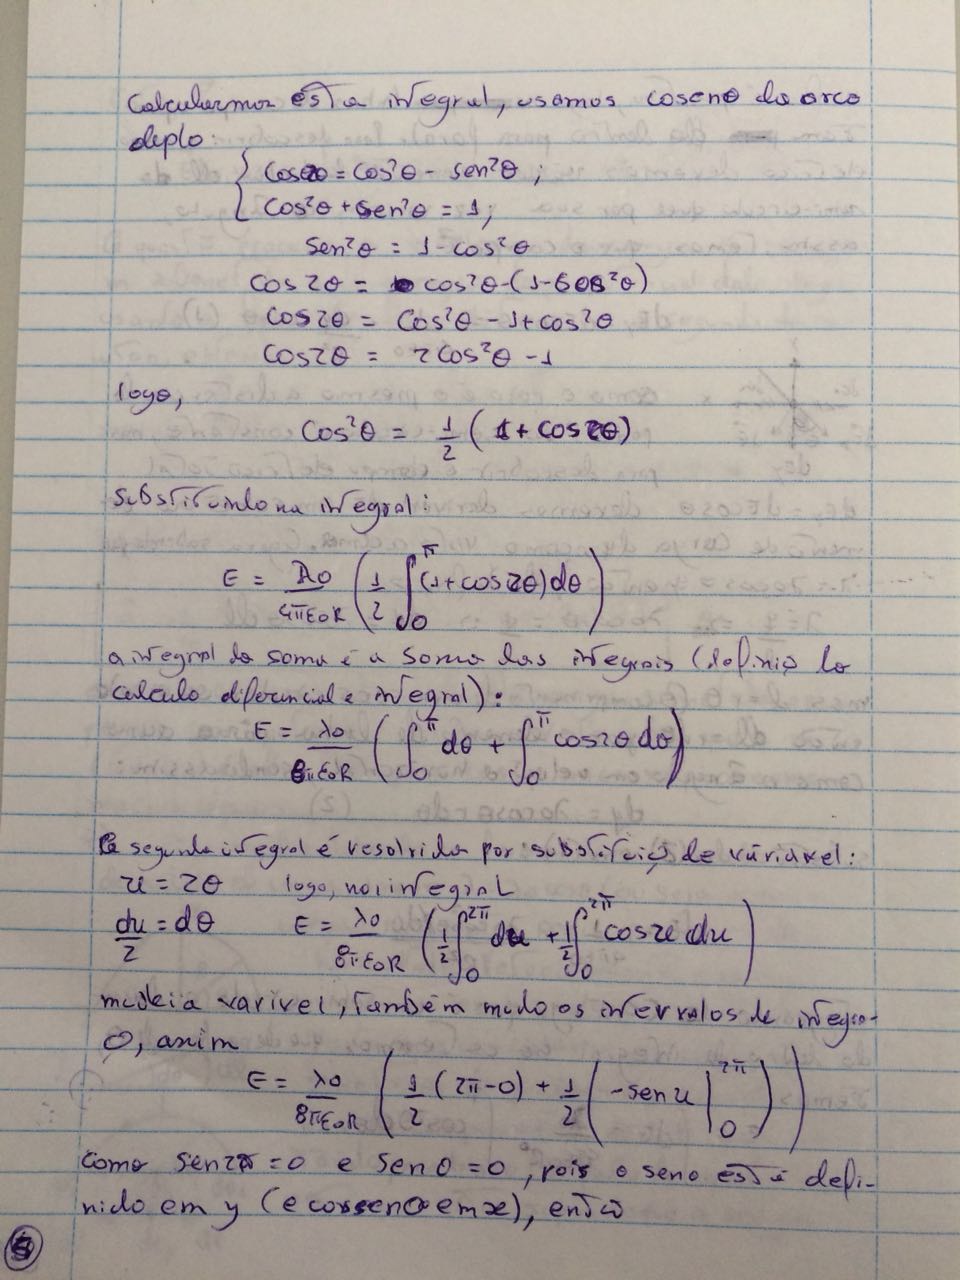 Calcularmos esta integral, usamos coseno do arco
duplo:
cos2θ = cos²θ - sen²θ ;
cos²θ + sen²θ = 1;
sen²θ = 1 - cos²θ
cos2θ = cos²θ - (1 - cos²θ)
cos2θ = cos²θ - 1 + cos²θ
cos2θ = 2cos²θ - 1
logo,
cos²θ = 1/2 (1 + cos2θ)
substituindo na integral:
E = λ0/4πε0R (1/2 ∫0^π (1 + cos2θ)dθ)
a integral da soma é a soma das integrais (definição do
calculo diferencial e integral):
E = λ0/8πε0R (∫0^π dθ + ∫0^π cos2θ dθ)
a segunda integral é resolvida por substituição de váriavel:
u = 2θ logo, na integral
du/2 = dθ E = λ0/8πε0R (1/2 ∫0^2π du + 1/2 ∫0^2π cosu du)
mudei a varivel, também mudo os intervalos de integra-
ção, assim
E = λ0/8πε0R (1/2 (2π-0) + 1/2 (-sen u |0^2π))
como sen2π = 0 e sen0 = 0, pois o seno está defi-
nido em y (e cosseno em x), então
5